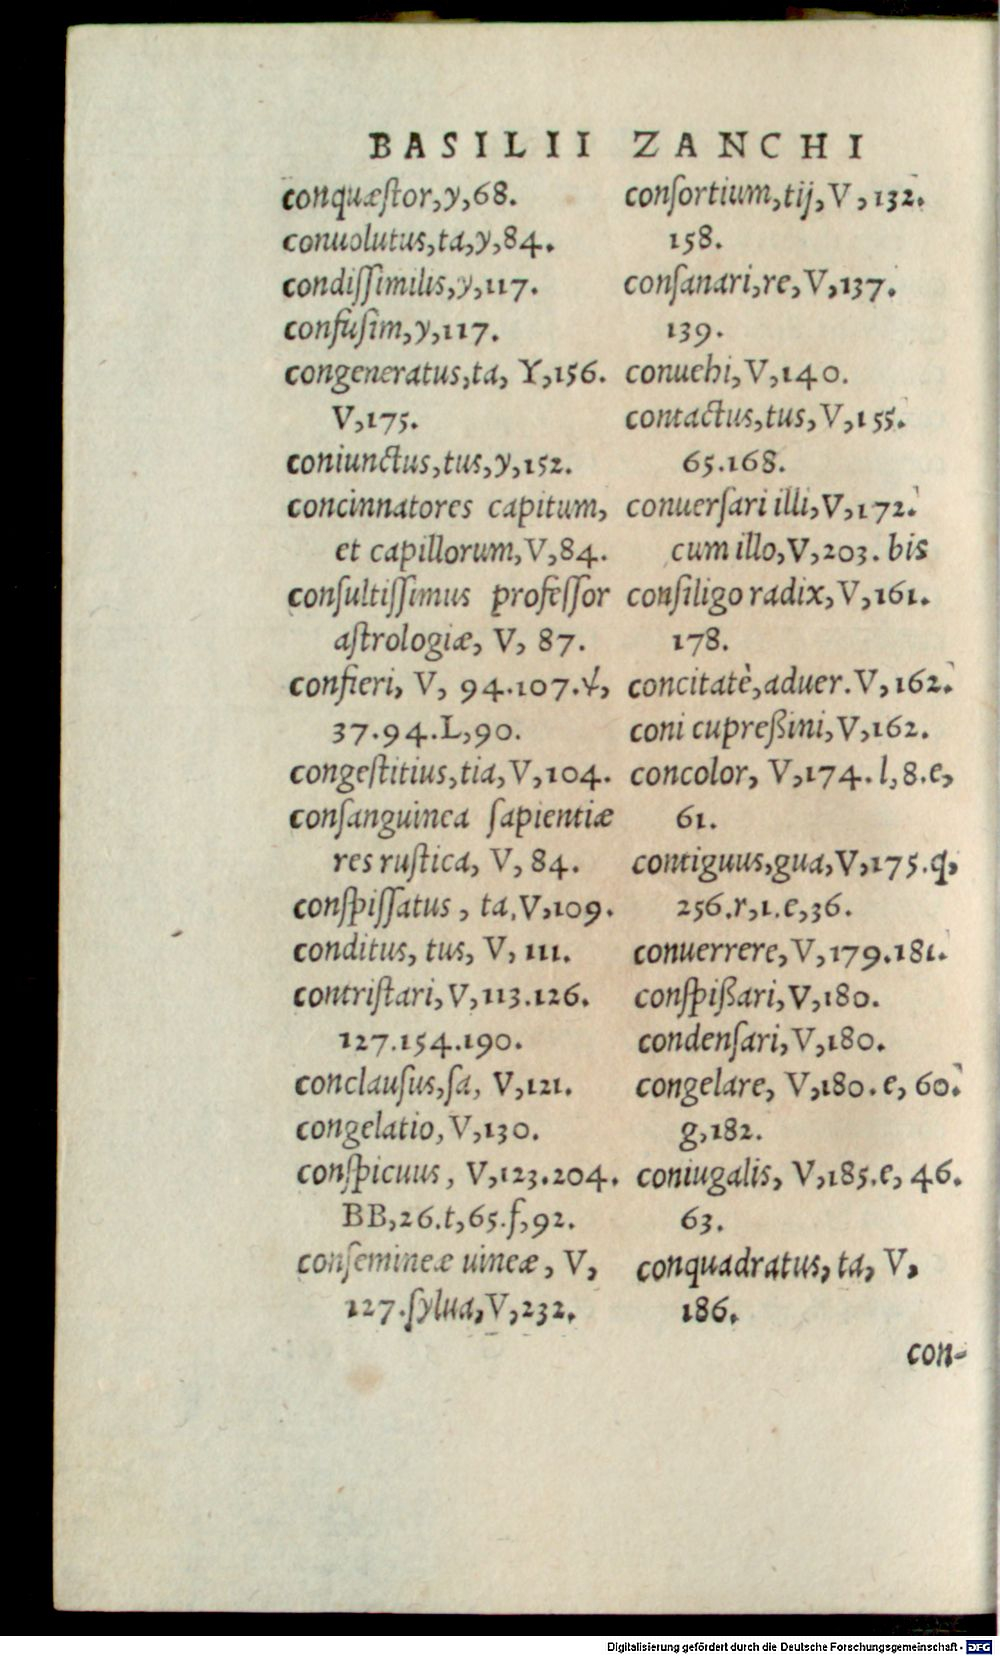 BASILII ZANCHI
conquæſtor,y,68.
conuolutus,ta,y,84.
condiſſimilis,y,117.
confuſim,y,117.
congeneratus,ta, Y,156.
V,175.
coniunctus,tus,y,152.
concinnatores capitum,
et capillorum,V,84.
conſultiſſimus profeſſor
aſtrologiæ, V, 87.
confieri, V, 94.107.ٰ
37.94.L,90.
congeſtitius,tia,V,104.
conſanguinea ſapientiæ
res ruſtica, V, 84.
conſpiſſatus, ta,V,109.
conditus, tus, V, 111.
contriſtari,V,113.126.
127.154.190.
conclauſus,ſa, V,121.
congelatio,V,130.
conſpicuus, V,123.204.
BB,26.t,65.ſ,92.
conſemineæ uineæ, V,
127.ſylua,V,232.
conſortium,tij,V,132.
158.
conſanari,re,V,137.
139.
conuehi,V,140.
contactus,tus,V,155.
65.168.
conuerſari illi,V,172.
cum illo,V,203. bis
conſiligo radix,V,161.
178.
concitatè,aduer.V,162.
coni cupreßini,V,162.
concolor, V,174.l,8.e,
61.
contiguus,gua,V,175.q,
256.r,1.e,36.
conuerrere,V,179.181.
conſpißari,V,180.
condenſari,V,180.
congelare, V,180.e, 60.
g,182.
coniugalis, V,185.e, 46.
63.
conquadratus,ta, V,
186.
con-
Digitalisierung gefördert durch die Deutsche Forschungsgemeinschaft - DFG